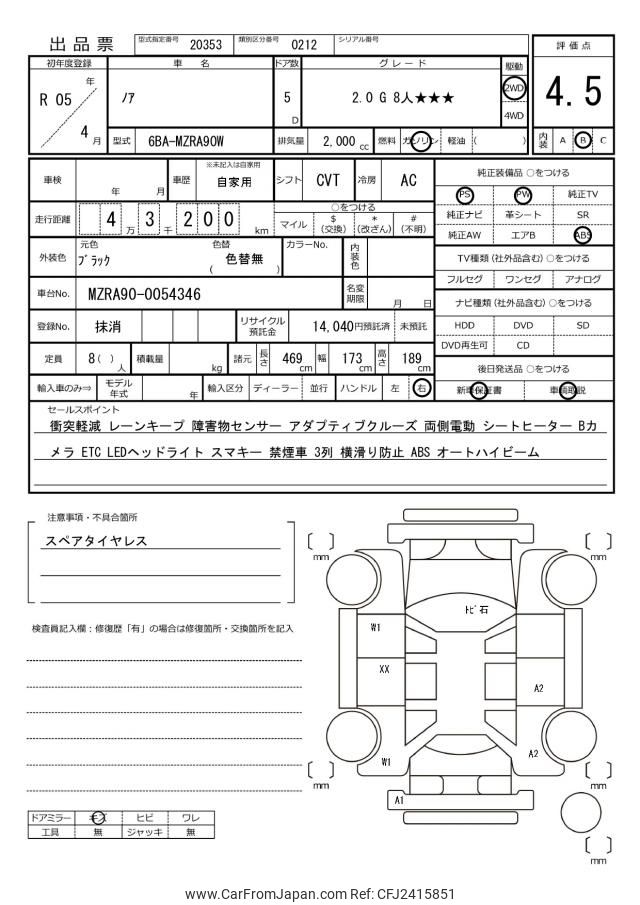 出品票 型式指定番号 20353 類別区分番号 0212 シリアル番号
評価点
4.5
内装 A B C
初年度登録 車名 ドア数 グレード 駆動
R 05 年 4 月
ノア
5 D
2.0 G 8人★★★
2WD
4WD
型式 6BA-MZRA90W 排気量 2,000 cc 燃料 ガソリン 軽油 ( )
車検 年 月 車歴 ※未記入は自家用 自家用 シフト CVT 冷房 AC
走行距離 4 万 3 千 2 0 0 km
○をつける
マイル $ (交換) * (改ざん) # (不明)
外装色 元色 ブラック 色替 ( 色替無 ) カラーNo. 内装色
車台No. MZRA90-0054346 名変期限 月 日
登録No. 抹消 リサイクル預託金 14,040円預託済 未預託
定員 8 ( ) 人 積載量 kg 諸元 長さ 469 cm 幅 173 cm 高さ 189 cm
輸入車のみ⇒ モデル年式 年 輸入区分 ディーラー 並行 ハンドル 左 右
純正装備品 ○をつける
PS PW 純正TV
純正ナビ 革シート SR
純正AW エアB ABS
TV種類 (社外品含む) ○をつける
フルセグ ワンセグ アナログ
ナビ種類 (社外品含む) ○をつける
HDD DVD SD
DVD再生可 CD
後日発送品 ○をつける
新車保証書 車輌取説
セールスポイント
衝突軽減 レーンキープ 障害物センサー アダプティブクルーズ 両側電動 シートヒーター Bカ
メラ ETC LEDヘッドライト スマキー 禁煙車 3列 横滑り防止 ABS オートハイビーム
注意事項・不具合箇所
スペアタイヤレス
検査員記入欄：修復歴「有」の場合は修復箇所・交換箇所を記入
ドアミラー キズ ヒビ ワレ
工具 無 ジャッキ 無
mm
mm
トビ石
W1
XX
A2
W1
A2
A1
mm
mm
mm
www.CarFromJapan.com Ref: CFJ2415851